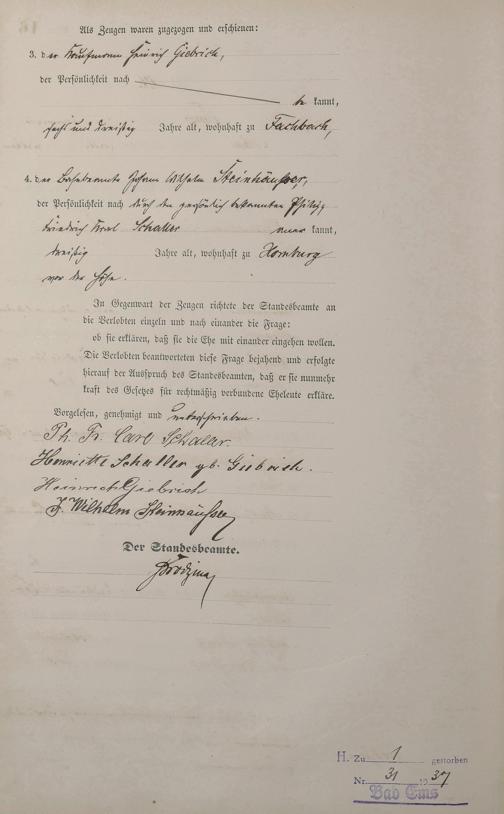 Als Zeugen waren zugezogen und erschienen:
3. der Kaufmann Heinrich Giebrich,
der Persönlichkeit nach
be kannt,
sechs und dreißig Jahre alt, wohnhaft zu Fachbach,
4. der Bahnbeamte Johann Wilhelm Steinhäusser,
der Persönlichkeit nach durch den persönlich bekannten Philipp
Friedrich Karl Schaller aner kannt,
dreißig Jahre alt, wohnhaft zu Homburg
vor der Höhe.
In Gegenwart der Zeugen richtete der Standesbeamte an
die Verlobten einzeln und nach einander die Frage:
ob sie erklären, daß sie die Ehe mit einander eingehen wollen.
Die Verlobten beantworteten diese Frage bejahend und erfolgte
hierauf der Ausspruch des Standesbeamten, daß er sie nunmehr
kraft des Gesetzes für rechtmäßig verbundene Eheleute erkläre.
Vorgelesen, genehmigt und unterschrieben.
Ph. Fr. Carl Schaller.
Henriette Schaller gb. Giebrich.
Heinrich Giebrich
J. Wilhelm Steinhäusser
Der Standesbeamte.
H. Zu 1 gestorben
Nr. 31 1937
Bad Ems